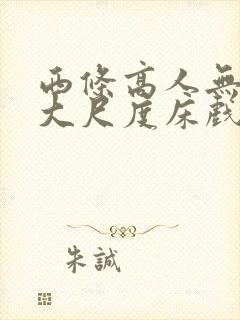 两條高人無
大尺度床戲
朱誠